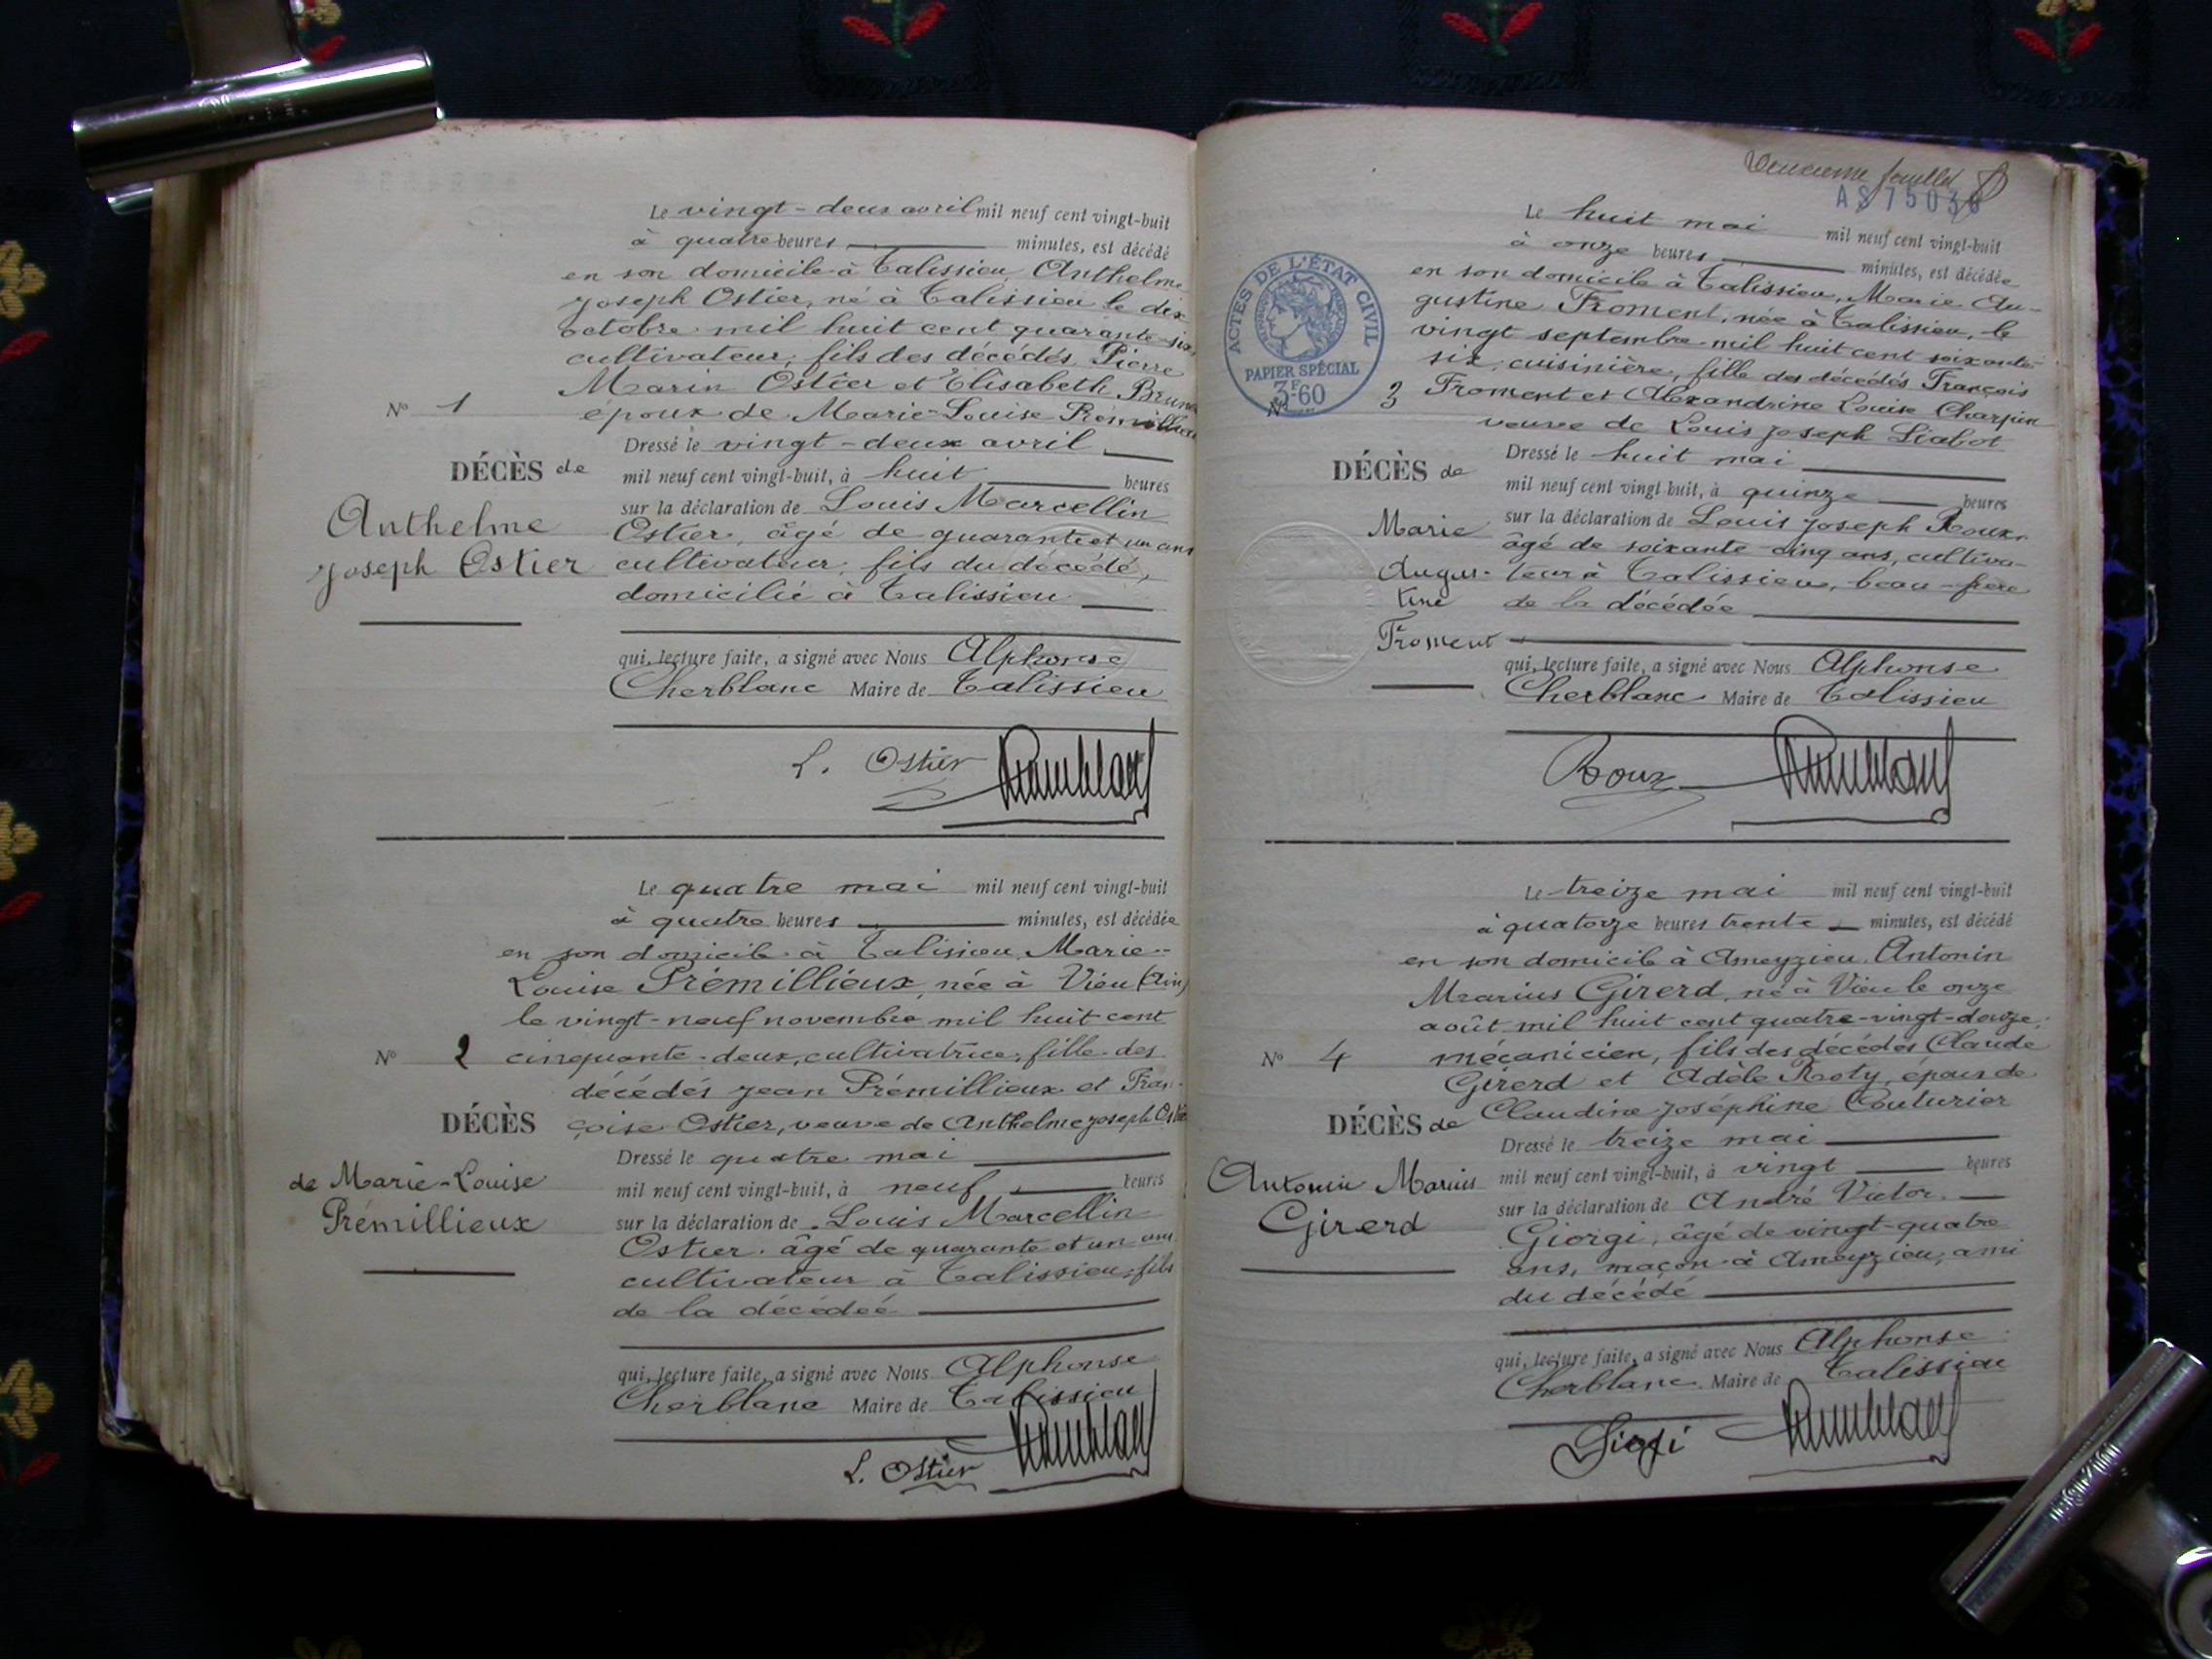 Le vingt-deux avril mil neuf cent vingt-huit
à quatre heures minutes, est décédé
en son domicile à Talissieu Anthelme
Joseph Ostier, né à Talissieu le dix
octobre mil huit cent quarante-six,
cultivateur, fils des décédés Pierre
Marin Ostier et Elisabeth
époux de Marie-Louise
N° 1
DÉCÈS de
Anthelme
Joseph Ostier
Dressé le vingt-deux avril
mil neuf cent vingt-huit, à huit heures
sur la déclaration de Louis Marcellin
Ostier, âgé de quarante et un ans
cultivateur, fils du décédé,
domicilié à Talissieu
qui, lecture faite, a signé avec Nous Alphonse
Cherblanc Maire de Talissieu
L. Ostier
Le quatre mai mil neuf cent vingt-huit
à quatre heures minutes, est décédée
en son domicile à Talissieu, Marie-
Louise Prémillieux, née à Vieu (Ain)
le vingt-neuf novembre mil huit cent
N° 2 cinquante-deux, cultivatrice, fille des
décédés Jean Prémillieux et Fran-
DÉCÈS çoise Ostier, veuve de Anthelme Joseph Ostier
de Marie-Louise
Prémillieux
Dressé le quatre mai
mil neuf cent vingt-huit, à neuf heures
sur la déclaration de Louis Marcellin
Ostier, âgé de quarante et un ans
cultivateur à Talissieu, fils
de la décédée
qui, lecture faite, a signé avec Nous Alphonse
Cherblanc Maire de Talissieu
L. Ostier
Deuxième feuillet
ACTES DE L'ÉTAT CIVIL
PAPIER SPÉCIAL
3F60
Le huit mai mil neuf cent vingt-huit
à onze heures minutes, est décédée
en son domicile à Talissieu, Marie Au-
gustine Froment, née à Talissieu, le
vingt septembre mil huit cent soixante-
six, cuisinière, fille des décédés François
N° 3 Froment et Alexandrine Louise Charpin
veuve de Louis Joseph Liabot
DÉCÈS de
Marie
Augus-
tine
Froment
Dressé le huit mai
mil neuf cent vingt-huit, à quinze heures
sur la déclaration de Louis Joseph Roux,
âgé de soixante-cinq ans, cultiva-
teur à Talissieu, beau-frère
de la décédée
qui, lecture faite, a signé avec Nous Alphonse
Cherblanc Maire de Talissieu
Roux
Le treize mai mil neuf cent vingt-huit
à quatorze heures trente minutes, est décédé
en son domicile à Ameyzieu, Antonin
Marius Girerd, né à Vieu le onze
août mil huit cent quatre-vingt-douze,
N° 4 mécanicien, fils des décédés Claude
Girerd et Adèle Roty, époux de
Claudine Joséphine Couturier
DÉCÈS de
Antonin Marius
Girerd
Dressé le treize mai
mil neuf cent vingt-huit, à vingt heures
sur la déclaration de André Victor
Giorgi, âgé de vingt-quatre
ans, maçon à Ameyzieu, ami
du décédé
qui, lecture faite, a signé avec Nous Alphonse
Cherblanc Maire de Talissieu
Giorgi